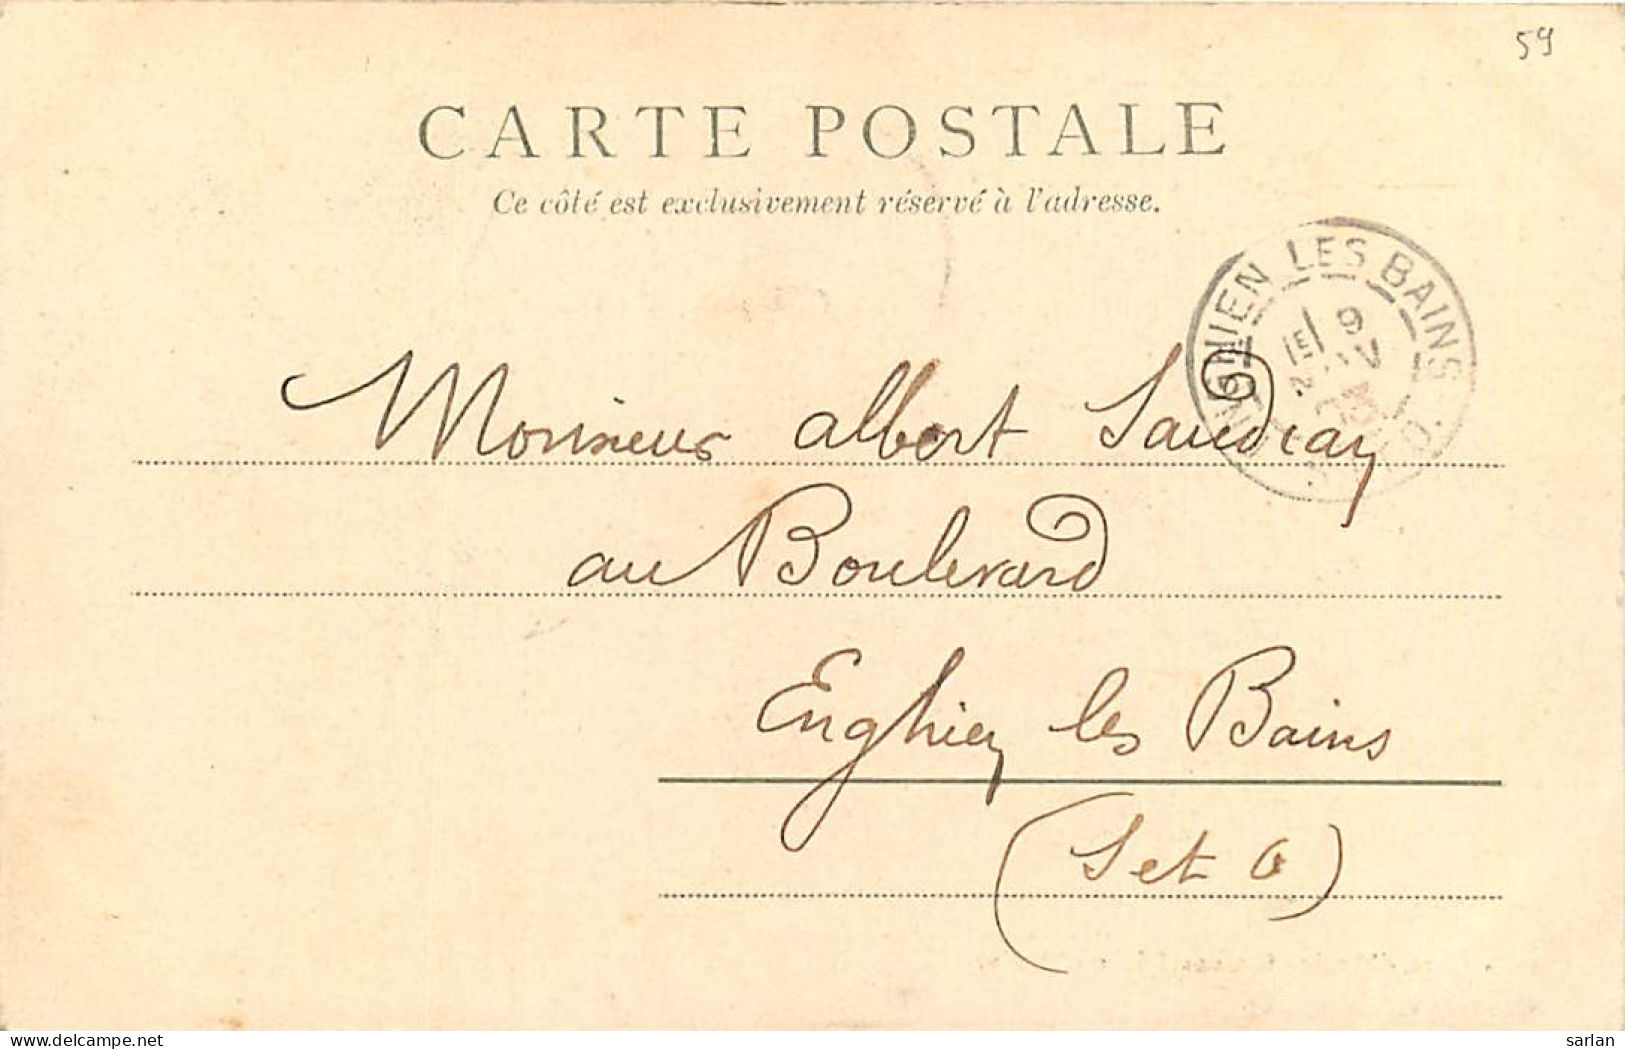 59
CARTE POSTALE
Ce côté est exclusivement réservé à l'adresse.
ENGHIEN LES BAINS
9
Monsieur Albert Saudray
au Boulevard
Enghien les Bains
(S et O)
delcampe.net
sarlan